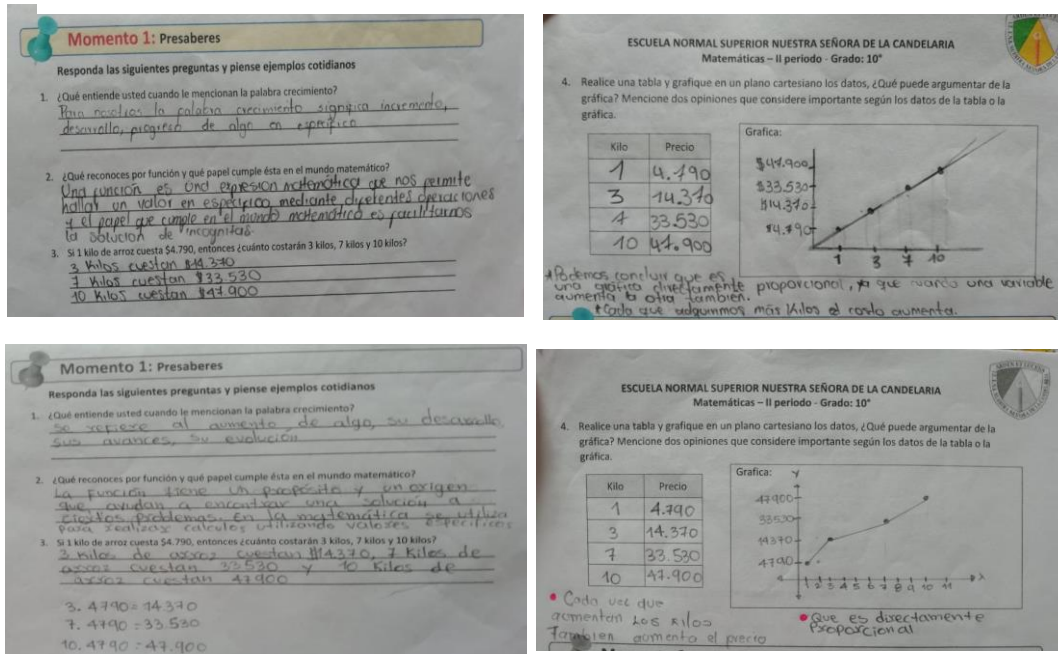 Momento 1: Presaberes
Responda las siguientes preguntas y piense ejemplos cotidianos
1. ¿Qué entiende usted cuando le mencionan la palabra crecimiento?
Para nosotros la palabra crecimiento significa incremento,
desarrollo, progreso de algo en especifico
2. ¿Qué reconoces por función y qué papel cumple ésta en el mundo matemático?
Una función es una expresión matemática que nos permite
hallar un valor en especifico, mediante diferentes operaciones
y el papel que cumple en el mundo matemático es facilitarnos
la solución de incognitas.
3. Si 1 kilo de arroz cuesta $4.790, entonces ¿cuánto costarán 3 kilos, 7 kilos y 10 kilos?
3 Kilos cuestan $14.370
7 Kilos cuestan $33.530
10 Kilos cuestan $47.900
ESCUELA NORMAL SUPERIOR NUESTRA SEÑORA DE LA CANDELARIA
Matemáticas – II periodo - Grado: 10°
4. Realice una tabla y grafique en un plano cartesiano los datos, ¿Qué puede argumentar de la
gráfica? Mencione dos opiniones que considere importante según los datos de la tabla o la
gráfica.
Kilo Precio
1 4.790
3 14.370
7 33.530
10 47.900
Grafica:
$47.900
$33.530
$14.370
$4.790
1 3 7 10
*Podemos concluir que es
una gráfica directamente proporcional, ya que cuando una variable
aumenta la otra tambien.
*Cada que adquimmos más Kilos el costo aumenta.
Momento 1: Presaberes
Responda las siguientes preguntas y piense ejemplos cotidianos
1. ¿Qué entiende usted cuando le mencionan la palabra crecimiento?
se refiere al aumento de algo, su desarrollo
sus avances, su evolución
2. ¿Qué reconoces por función y qué papel cumple ésta en el mundo matemático?
La función tiene un proposito y un origen
que ayudan a encontrar una solución a
ciertos problemas. En la matemática se utiliza
para realizar calculos utilizando valores especificos
3. Si 1 kilo de arroz cuesta $4.790, entonces ¿cuánto costarán 3 kilos, 7 kilos y 10 kilos?
3 kilos de arroz cuestan $14.370, 7 Kilos de
arroz cuestan 33530 y 10 Kilos de
arroz cuestan 47900
3. 4790 = 14.370
7. 4790 = 33.530
10. 4790 = 47.900
ESCUELA NORMAL SUPERIOR NUESTRA SEÑORA DE LA CANDELARIA
Matemáticas – II periodo - Grado: 10°
4. Realice una tabla y grafique en un plano cartesiano los datos, ¿Qué puede argumentar de la
gráfica? Mencione dos opiniones que considere importante según los datos de la tabla o la
gráfica.
Kilo Precio
1 4.790
3 14.370
7 33.530
10 47.900
Grafica: y
47900
33530
14370
4790
1 2 3 4 5 6 7 8 9 10 11 x
Cada vez que
aumentan Los Kilos
Tambien aumenta el precio
Que es directamente
Proporcional